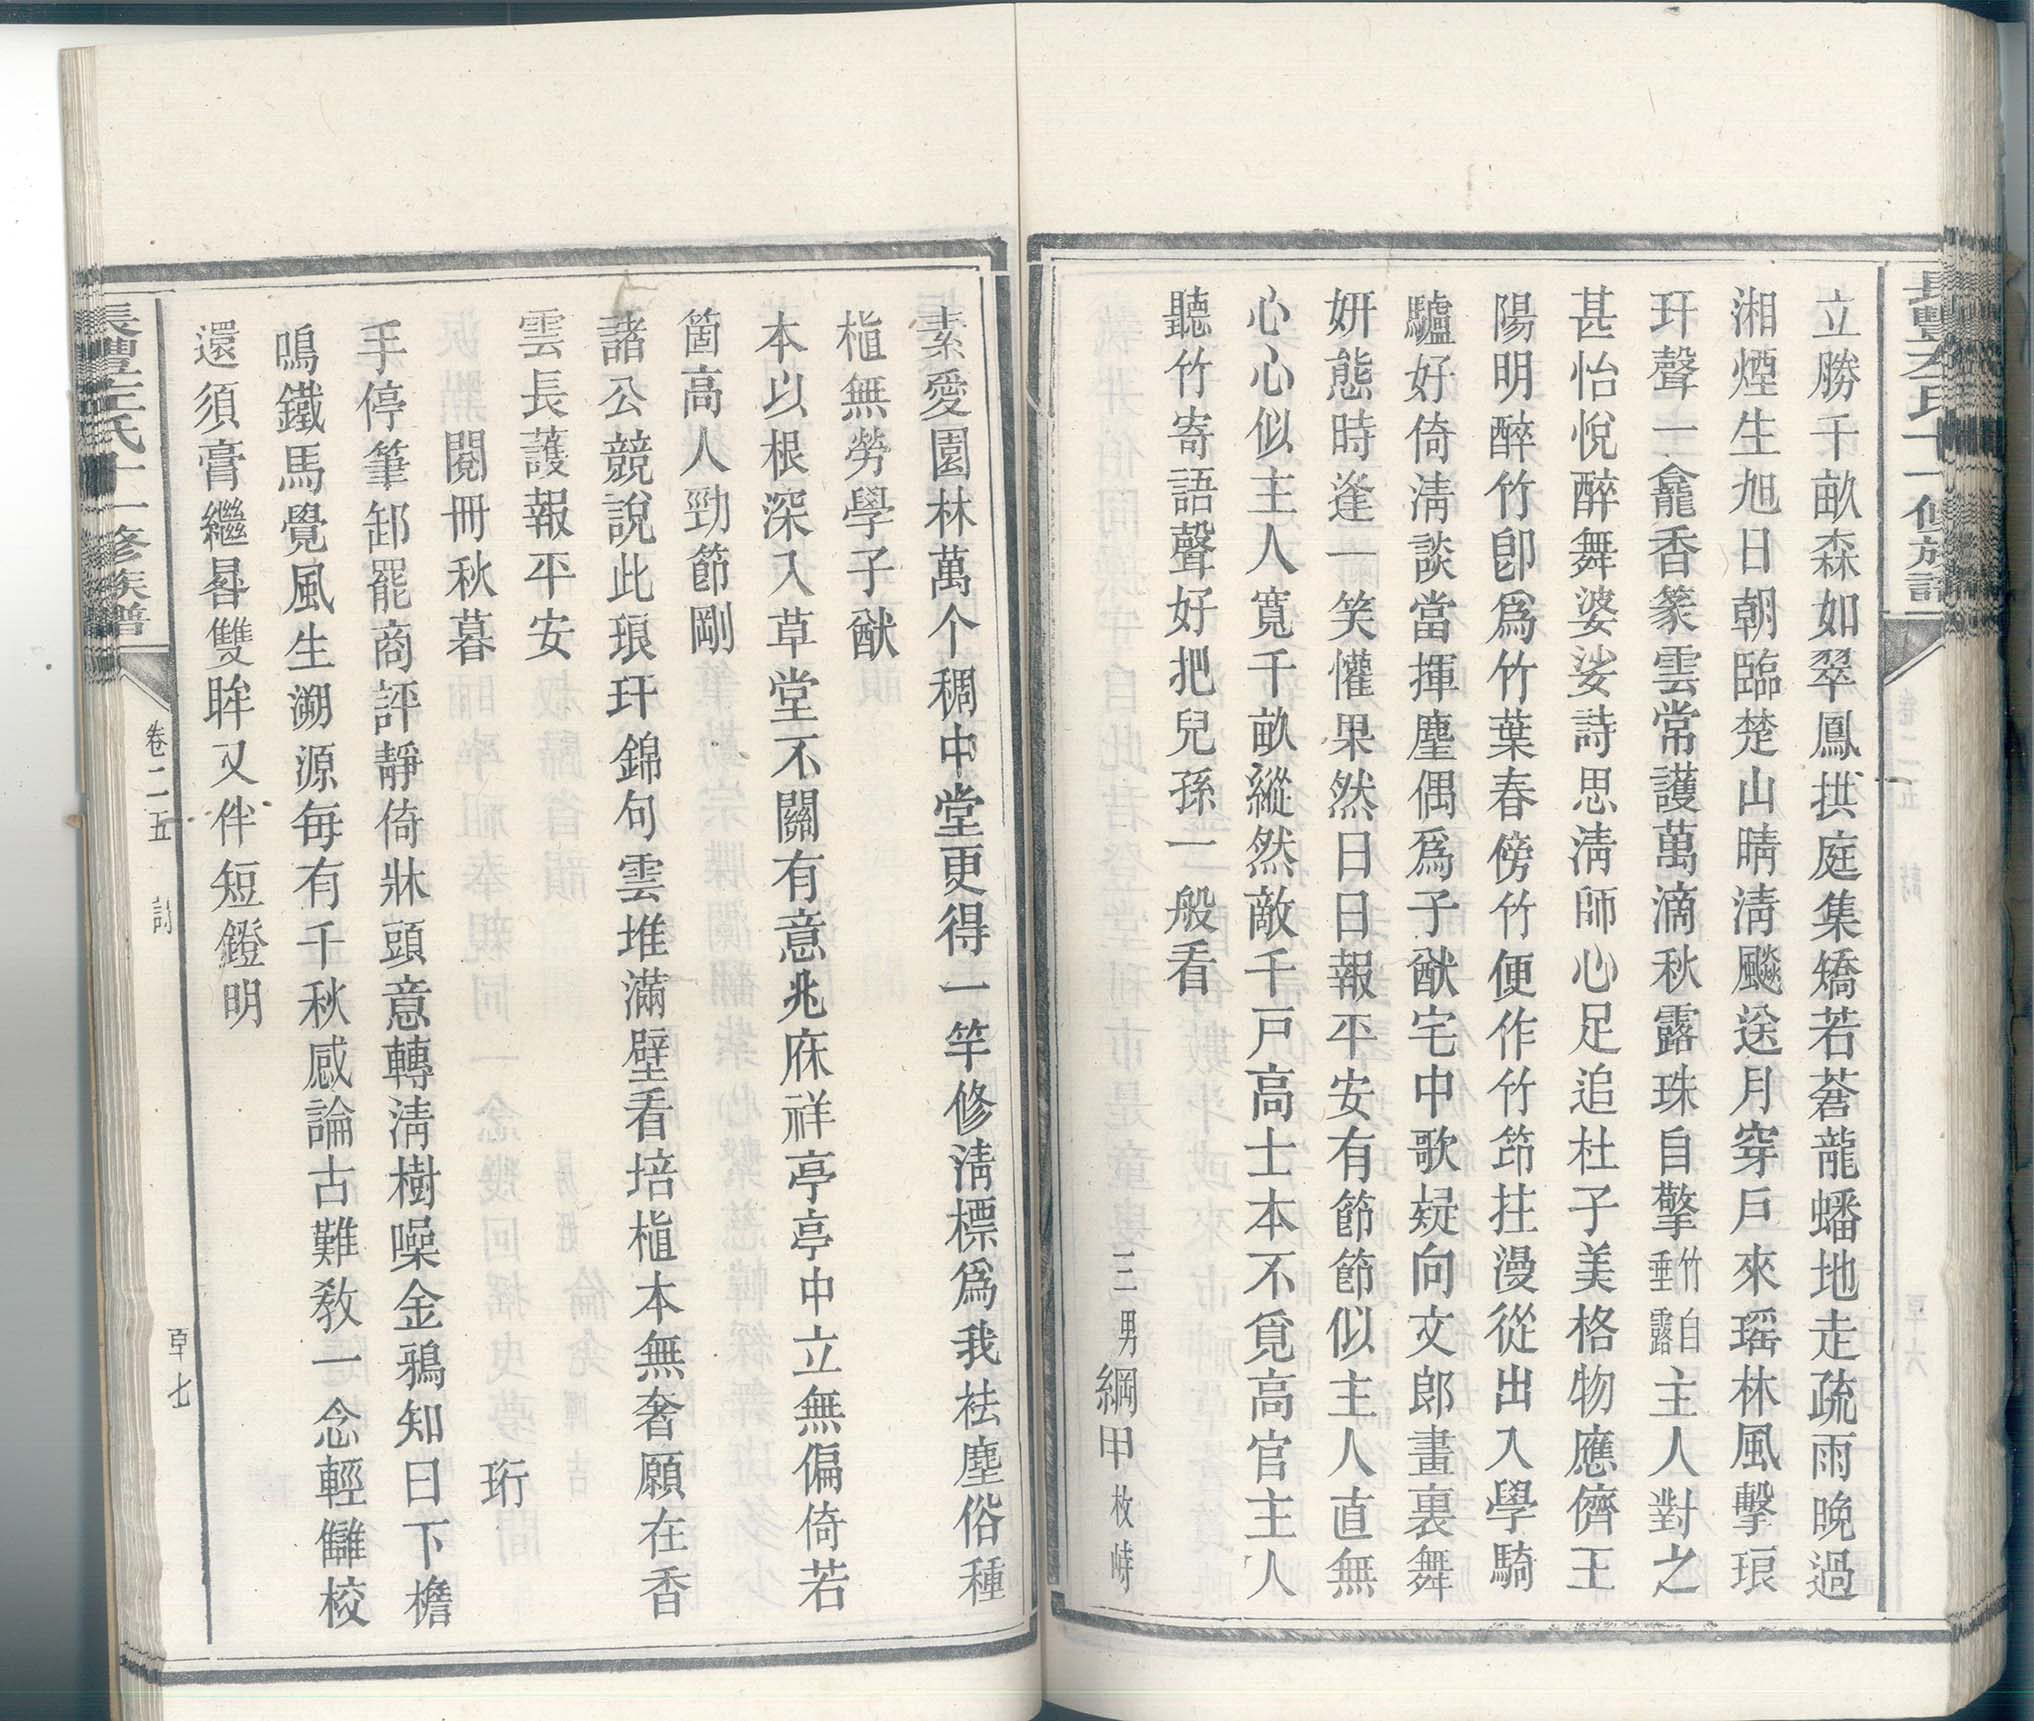 立勝千畝森如翠鳳拱庭集矯若蒼龍蟠地走疏雨晚過
湘煙生旭日朝臨楚山晴淸飈送月穿戶來瑶林風擊琅
玕聲主一龕香篆雲常護萬滴秋露珠自擎竹白垂露主人對之
甚怡悅醉舞婆娑詩思淸師心足追杜子美格物應儕王
陽明醉竹卽爲竹葉春傍竹便作竹笻拄漫從出入學騎
驢好倚淸談當揮塵偶爲子猷宅中歌疑向文郞畫裏舞
妍態時逢一笑懽果然日日報平安有節節似主人直無
心心似主人寬千畝縱然敵千戶高士本不覓高官主人
聽竹寄語聲好把兒孫一般看
三男綱甲枚峙
素愛園林萬个稠中堂更得一竿修淸標爲我袪塵俗種
植無勞學子猷
本以根深入草堂不關有意兆庥祥亭亭中立無偏倚若
箇高人勁節剛
諸公競說此琅玕錦句雲堆滿壁看培植本無奢願在香
雲長護報平安
閱冊秋暮
珩
手停筆卸罷商評靜倚牀頭意轉淸樹噪金鴉知日下檐
鳴鐵馬覺風生溯源每有千秋感論古難敎一念輕讎校
還須膏繼晷雙眸又伴短鐙明
長豐左氏十一修族譜
卷二五
詩
卓七